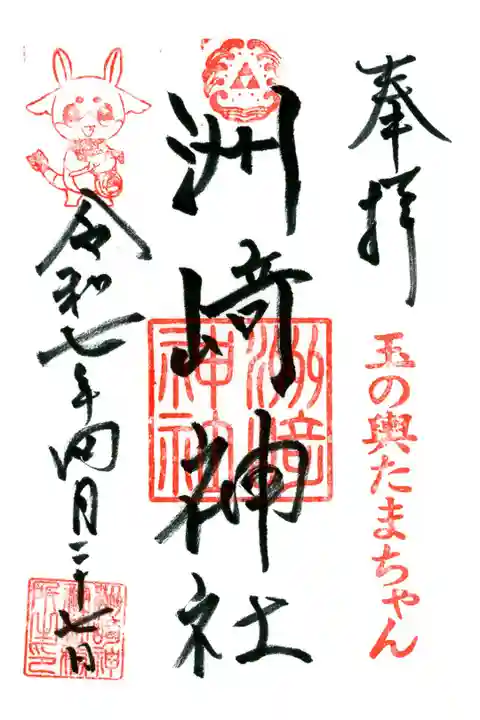 奉拝
玉の輿たまちゃん
洲崎神社
洲崎神社
令和七年四月二十七日